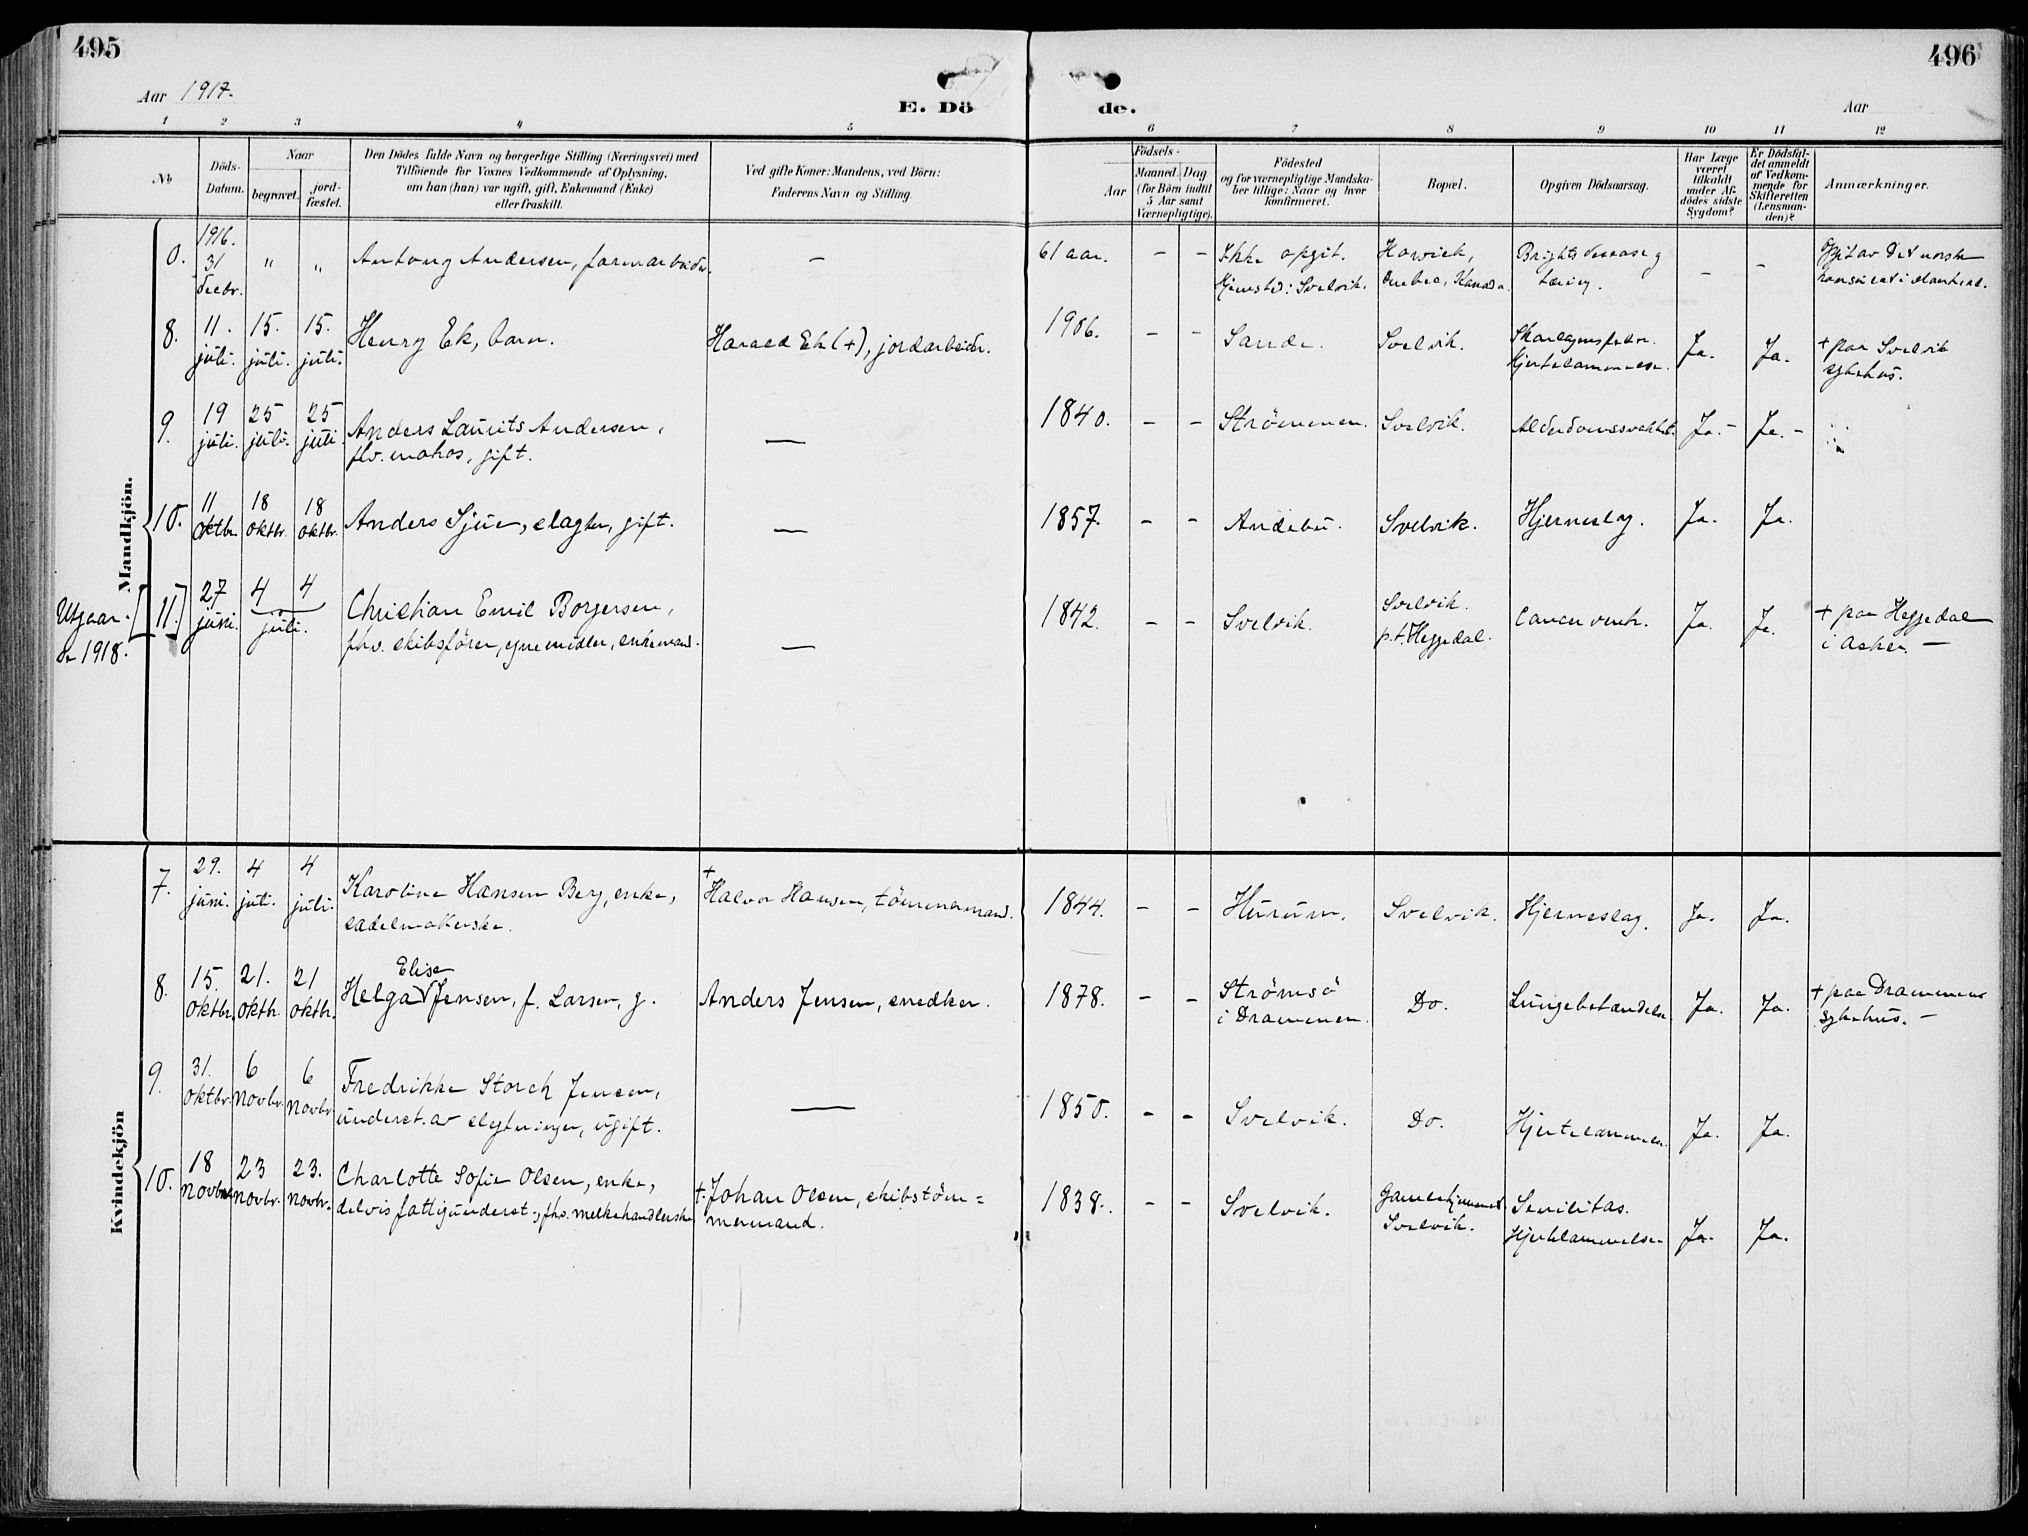 495
496
Aar 1917.
E. Döde.
Aar
1 2 3 4 5 6 7 8 9 10 11 12
No
Döds-Datum.
Naar
begravet.
jord-fæstet.
Den Dödes fulde Navn og borgerlige Stilling (Næringsvei) med
Tilföiende for Voxnes Vedkommende af Oplysning,
om han (hun) var ugift, gift, Enkemand (Enke)
eller fraskilt.
Ved gifte Koner: Mandens, ved Börn:
Faderens Navn og Stilling.
Födsels-
Aar
Maaned. Dag
(for Börn indtil
5 Aar samt
Værnepligtige).
Födested
og for værnepligtige Mandska-
ber tillige: Naar og hvor
konfirmeret.
Bopæl.
Opgiven Dödsaarsag.
Har Læge
været
tilkaldt
under Af-
dödes sidste
Sygdom?
Er Dödsfal-
det anmeldt
af Vedkom-
mende for
Skifteretten
(Lensman-
den)?
Anmærkninger.
Mandkjön.
0. 1916. 31 decbr. " " Antony Andersen, farmarbeider. — 61 aar. – – Ikke opgit. Hjemsted: Svelvik. Howick, Quebec, Kanada. Brights desease og tæring. – – Opgit av Det norske konsulat i Montreal.
8. 11. juli. 15. juli. 15. juli. Henry Ek, barn. Harald Ek (+), jordarbeider. 1906. – – Sande. Svelvik. Skarlagensfeber. Hjertelammelse. Ja. Ja. + paa Svelvik sykehus.
9. 19 juli. 25 juli. 25 juli. Anders Laurits Andersen, fhv. matros, gift. — 1840. – – Strömmen. Svelvik. Alderdomssvakhet. Ja. – Ja. –
10. 11 oktbr. 18 oktbr. 18 oktbr. Anders Sjue, slagter, gift. — 1857. – – Andebu. Svelvik. Hjerneslag. Ja. Ja.
Utgaar. se 1918. [11.] 27 juni. 4 4 juli. Christian Emil Borgersen, fhv. skibsförer, egne midler, enkemand. — 1842. – – Svelvik. Svelvik. p.t. Heggedal. Cancer ventr. Ja. Ja. + paa Heggedal i Asker. —
Kvindekjön
7. 29. juni. 4 juli. 4 juli. Karoline Hansen Berg, enke, sadelmakerske. + Halvor Hansen, tömmermand. 1844. – – Hurum. Svelvik. Hjerneslag. Ja. Ja.
8. 15. oktbr. 21. oktbr. 21 oktbr. Helga Elise Jensen, f. Larsen, g. Anders Jensen, snedker. 1878. – – Strömsö i Drammen. Do. Lungebetændelse Ja. Ja. + paa Drammens sykehus. —
9. 31. oktbr. 6 novbr. 6 novbr. Fredrikke Storch Jensen, underst. av slegtninger, ugift. — 1850. – – Svelvik. Do. Hjertelammelse. Ja. Ja.
10. 18 novbr. 23 novbr. 23. novbr. Charlotte Sofie Olsen, enke, delvis fattigunderst., fhv. melkehandlerske + Johan Olsen, skibstöm= mermand. 1838. – – Svelvik. Gamlehjemmet Svelvik. Senilitas. Hjertelammelse. Ja. Ja.